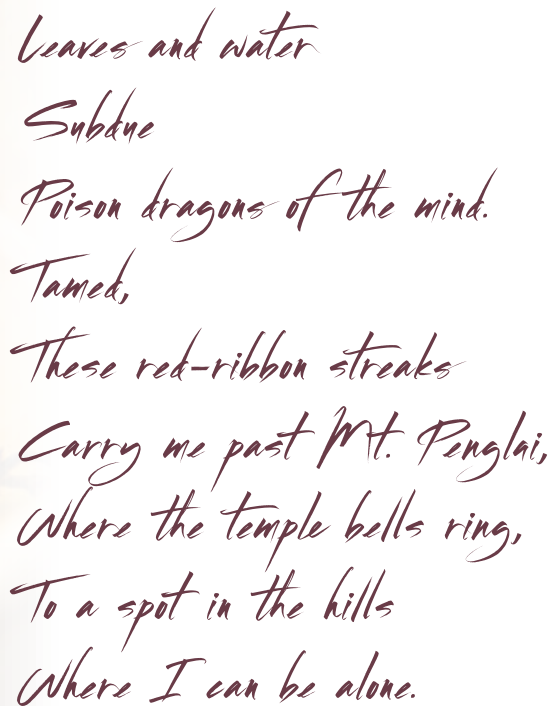 Leaves and water
Subdue
Poison dragons of the mind.
Tamed,
These red-ribbon streaks
Carry me past Mt. Penglai,
Where the temple bells ring,
To a spot in the hills
Where I can be alone.